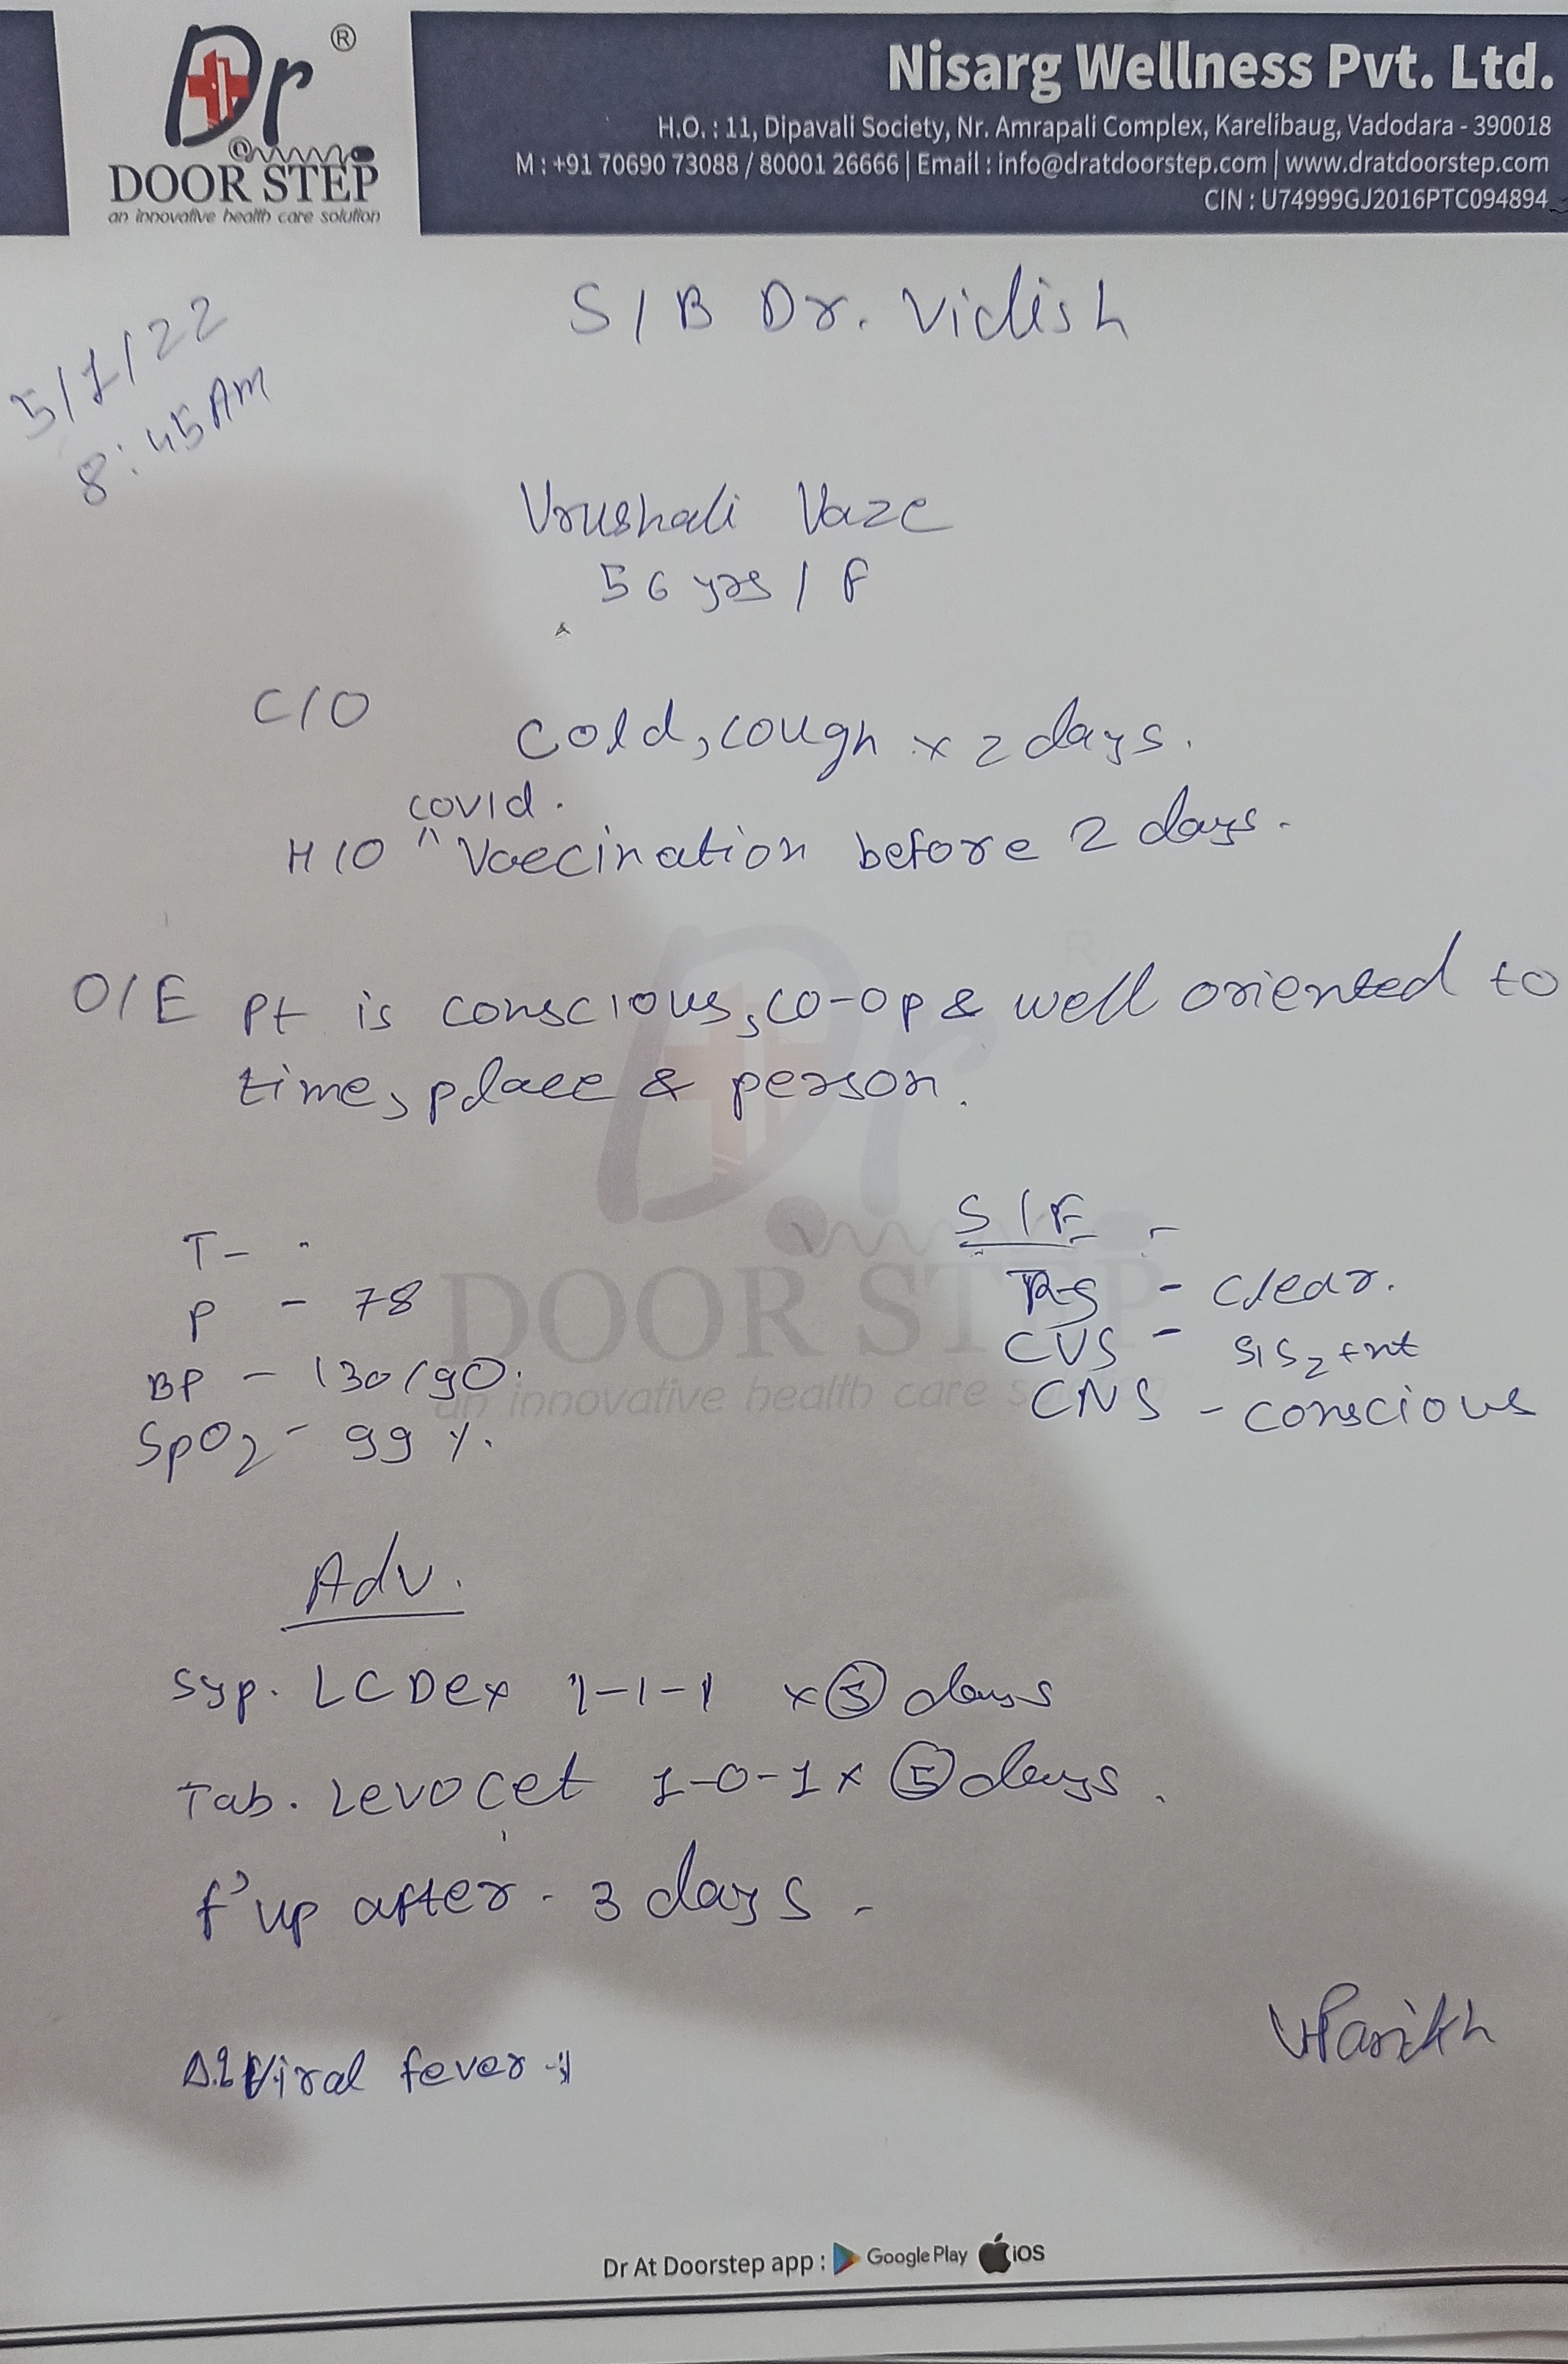 Dr ®
@
DOOR STEP
an innovative health care solution
Nisarg Wellness Pvt. Ltd.
H.O. : 11, Dipavali Society, Nr. Amrapali Complex, Karelibaug, Vadodara - 390018
M : +91 70690 73088 / 80001 26666 | Email : info@dratdoorstep.com | www.dratdoorstep.com
CIN : U74999GJ2016PTC094894
S/B Dr. Vidish
5/1/22
8:45 AM
Vrushali Vaze
56 yrs / F
C/O
Cold, cough x 2 days.
covid.
H/O ^ Vaccination before 2 days.
O/E pt is conscious, co-op & well oriented to
time, place & person.
T-
P - 78
BP - 130/90.
SpO2 - 99 %.
S/E -
RS - Clear.
CVS - S1S2 +nt
CNS - conscious
Dr
DOOR STEP
an innovative health care
Adv.
Syp. LCDex 1-1-1 x 5 days
Tab. Levocet 1-0-1 x 5 days.
f'up after. 3 days.
Viral fever
VParikh
Dr At Doorstep app : Google Play iOS